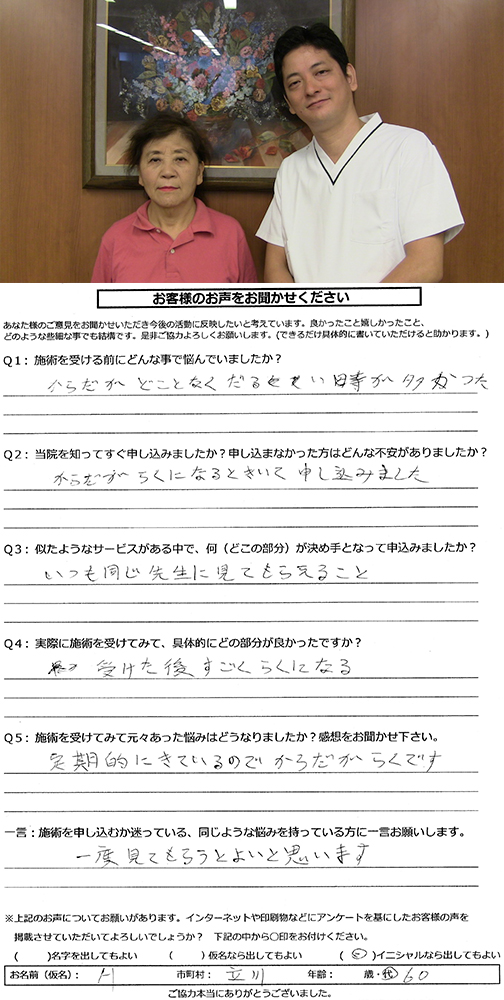 お客様のお声をお聞かせください
あなた様のご意見をお聞かせいただき今後の活動に反映したいと考えています。良かったこと嬉しかったこと、
どのような些細な事でも結構です。是非ご協力よろしくお願いします。(できるだけ具体的に書いていただけると助かります。)
Q1：施術を受ける前にどんな事で悩んでいましたか？
からだがどことなくだるい時が多かった
Q2：当院を知ってすぐ申し込みましたか？申し込まなかった方はどんな不安がありましたか？
からだがらくになるときいて申し込みました
Q3：似たようなサービスがある中で、何（どこの部分）が決め手となって申込みましたか？
いつも同じ先生に見てもらえること
Q4：実際に施術を受けてみて、具体的にどの部分が良かったですか？
受けた後すごくらくになる
Q5：施術を受けてみて元々あった悩みはどうなりましたか？感想をお聞かせ下さい。
定期的にきているのでからだがらくです
一言：施術を申し込むか迷っている、同じような悩みを持っている方に一言お願いします。
一度見てもらうとよいと思います
※上記のお声についてお願いがあります。インターネットや印刷物などにアンケートを基にしたお客様の声を
掲載させていただいてよろしいでしょうか？　下記の中から〇印をお付けください。
(　　)名字を出してもよい　(　　)仮名なら出してもよい　(　〇　)イニシャルなら出してもよい
お名前（仮名）：　市町村：立川　年齢：　歳・代 60
ご協力本当にありがとうございました。